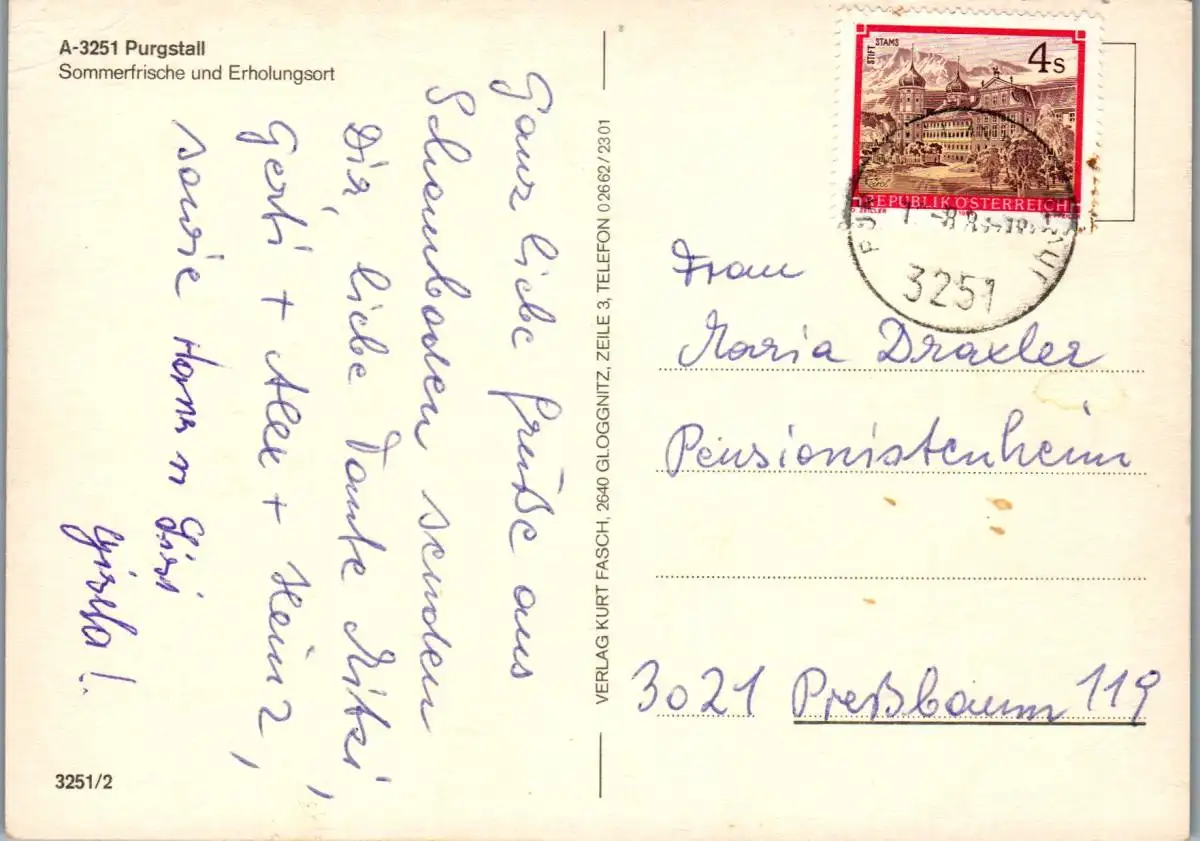 A-3251 Purgstall
Sommerfrische und Erholungsort
Ganz liebe Grüße aus
Schaunboden senden
Dir, liebe Tante Mitzi,
Gerti + Alex + Heinz,
sowie
3251/2
VERLAG KURT FASCH, 2640 GLOGGNITZ, ZEILE 3, TELEFON 02662/2301
STIFT STAMS
4s
REPUBLIK ÖSTERREICH
3251
Frau
Maria Draxler
Pensionistenheim
3021 Preßbaum 119